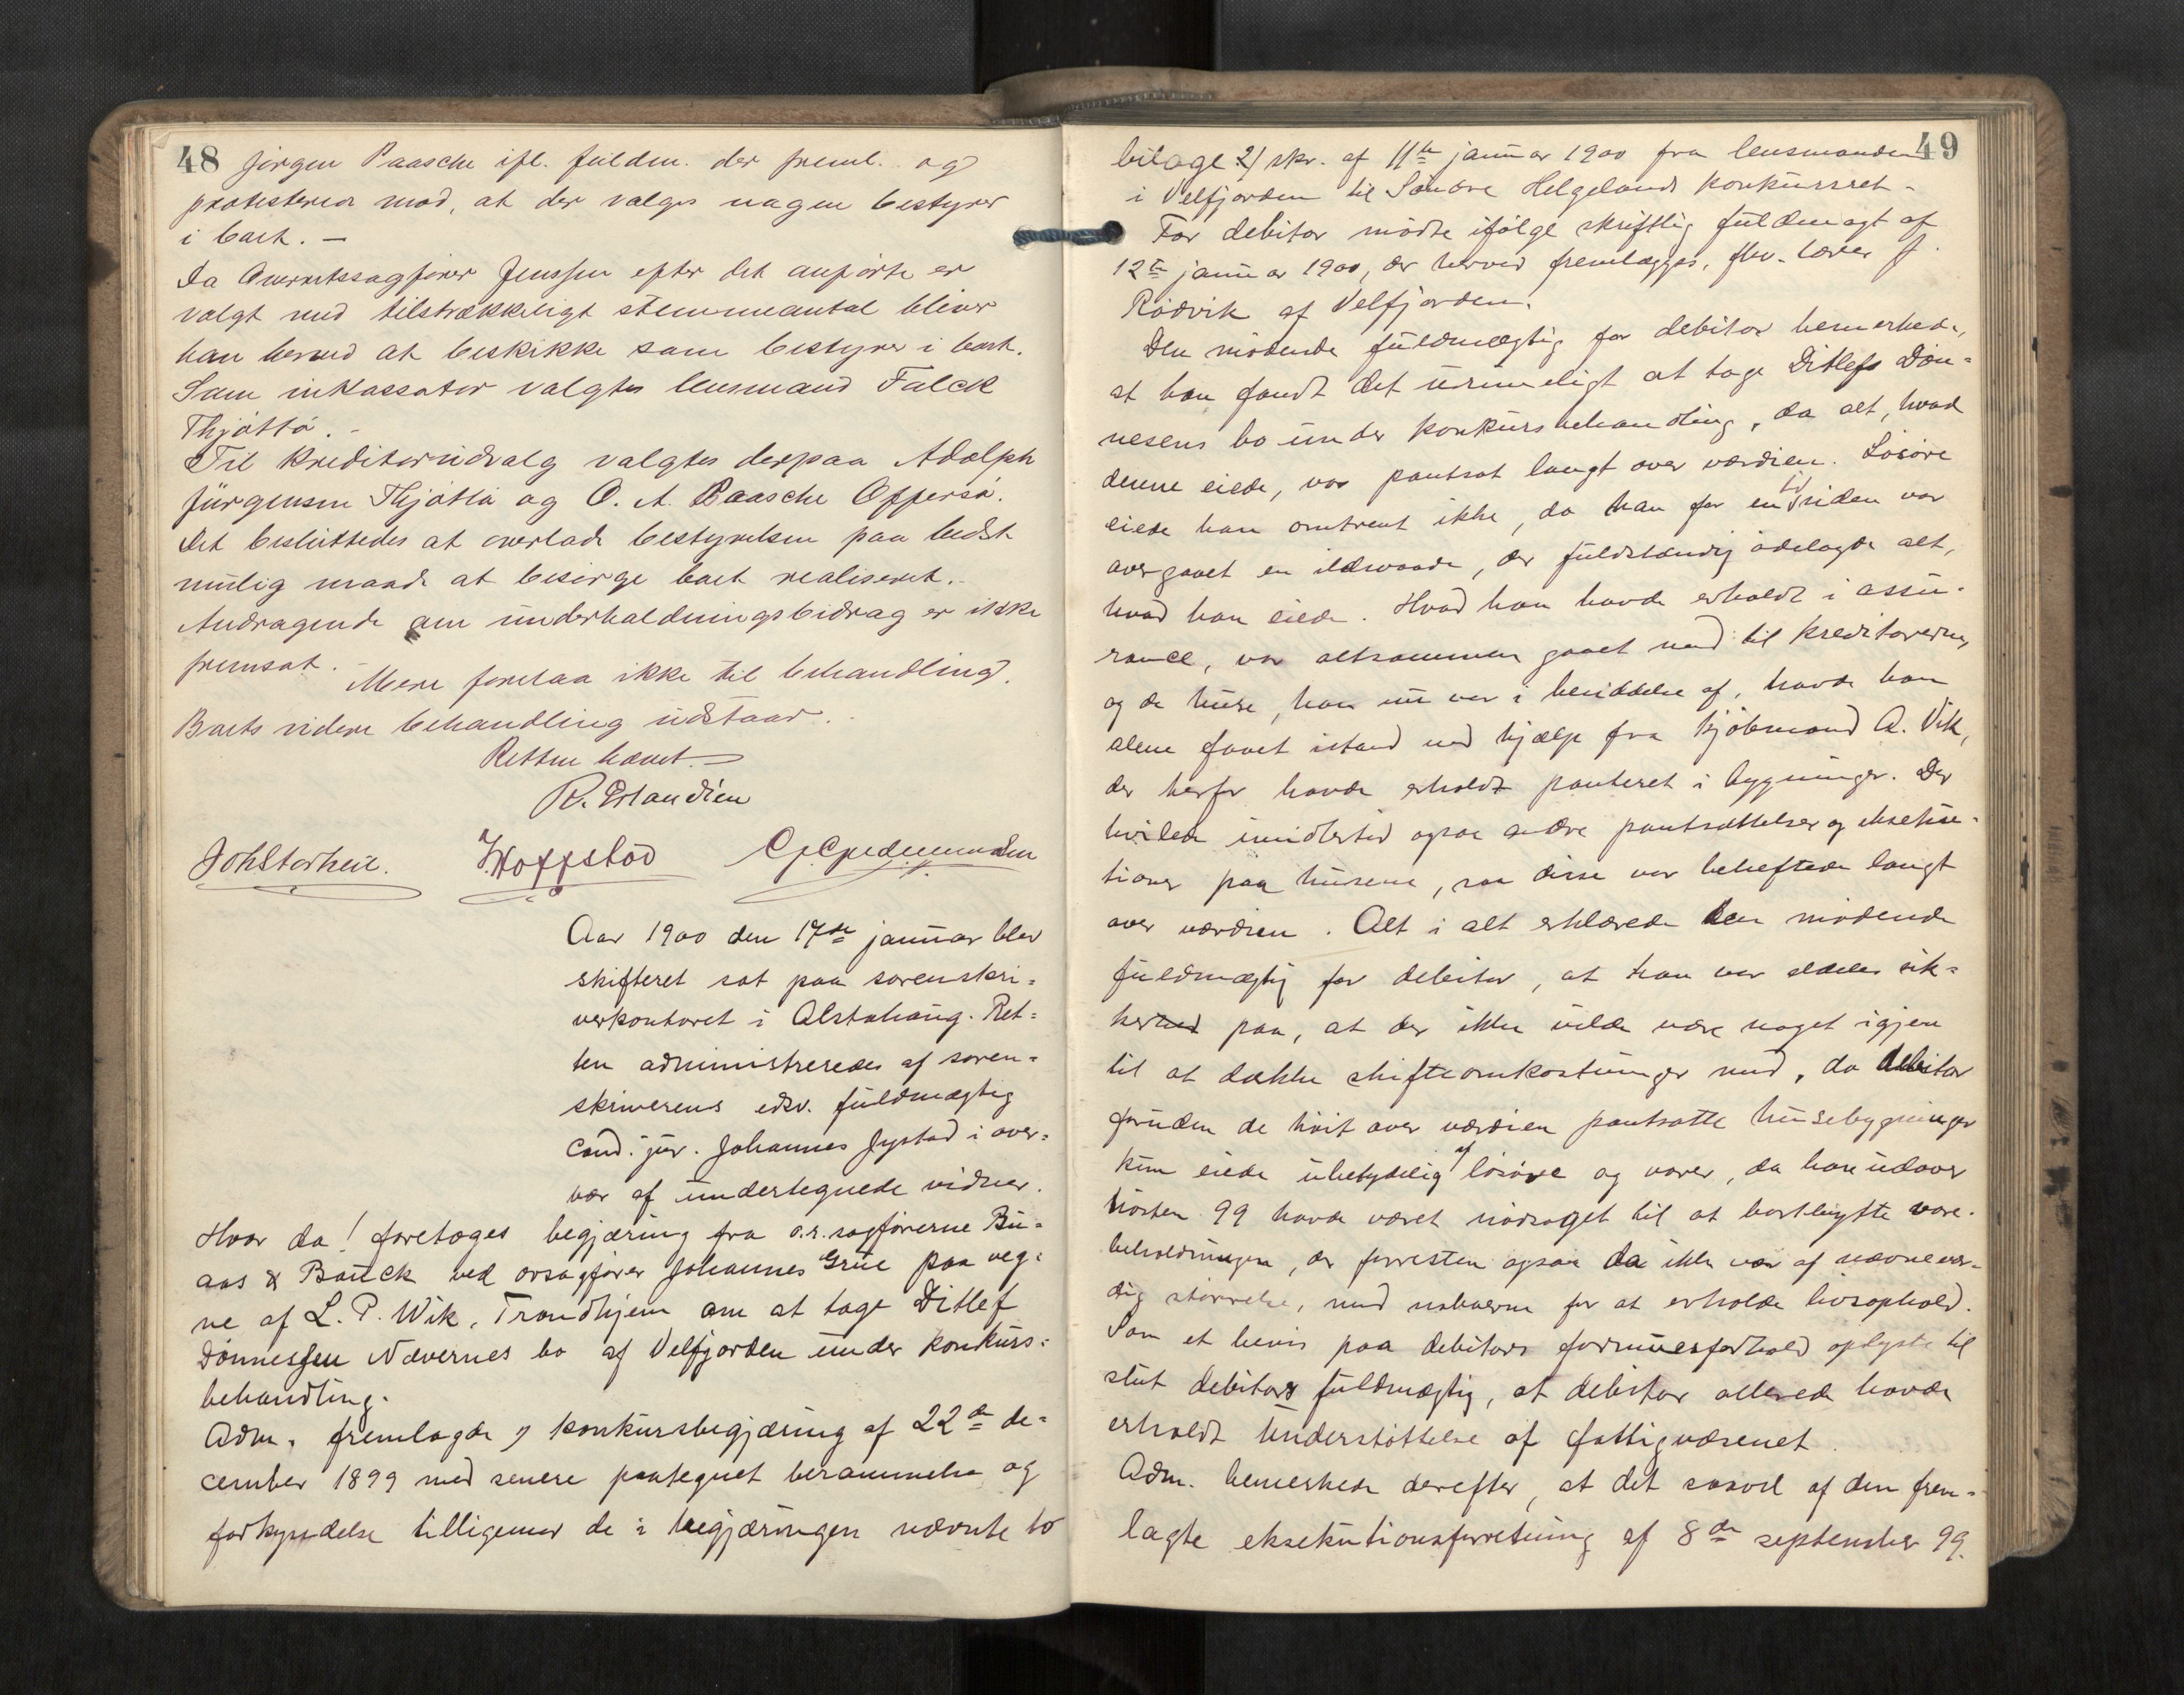 48 Jörgen Paasche ifl. fuldm. der freml. og
protesterer mod, at der valges nogen bestyrer
i boet. —
Da Overretssagförer Jenssen efter det anförte er
valgt med tilstrækkeligt stemmeantal bliver
han herved at beskikke som bestyrer i boet.
Som inkassator valgtes lensmand Falck
Thjöttö. -
Til kreditorudvalg valgtes derpaa Adolph
Jürgensen Thjöttö og O. A. Paasche Offersö.
Det besluttedes at overlade bestyrelsen paa bedst
mulig maade at besörge boet realiseret. -
Andragende om underholdningsbidrag er ikke
fremsat. -
Mere forelaa ikke til behandling.
Boets videre behandling udstaar. -
Retten hævet. —
R. Erlandsen
Joh Storheil. J. Hoffstad
Aar 1900 den 17de januar blev
skifteret sat paa sorenskri=
verkontoret i Alstahaug. Ret=
ten administreredes af soren=
skriverens edsv. fuldmægtig
cand. jur. Johannes Jystad i over=
vær af undertegnede vidner.
Hvor da! foretoges begjæring fra o.r. sagförerne Bu=
aas & Bauck ved orsagförer Johannes Grüe paa veg=
ne af L. P. Wik, Trondhjem om at tage Ditlef
Dönnessen Nævernes bo af Velfjorden under konkurs=
behandling.
Adm. fremlagde 1) konkursbegjæring af 22de de=
cember 1899 med senere paategnet berammelse og
forkyndelse tilligemed de i begjæringen nævnte to
49
bilage 2) skr. af 11te januar 1900 fra lensmanden
i Velfjorden til Söndre Helgelands konkursret -
For debitor mödte ifölge skriftlig fuldmagt af
12te januar 1900, der herved fremlægges, fhv. lærer J.
Rödvik af Velfjorden.
Den mödende fuldmægtig for debitor bemerkede,
at han fandt det urimeligt at tage Ditlef Dön=
nesens bo under konkursbehandling, da alt, hvad
denne eiede, var pantsat langt over værdien. Lösöre
eiede han omtrent ikke, da han for en tid siden var
overgaaet en ildsvaade, der fuldstændig ödelagde alt,
hvad han eiede. Hvad han havde erholdt i assu-
rance, var altsammen gaaet med til kreditorerne,
og de huse, han nu var i besiddelse af, havde han
alene faaet istand med hjælp fra kjöbmand A. Vik,
der herfor havde erholdt panteret i bygninger. Der
hvilede imidlertid ogsaa andre pantsættelser og eksekü-
tioner paa husene, saa disse var beheftede langt
over værdien. Alt i alt erklærede den mödende
fuldmægtig for debitor, at han var aldeles sik=
ker paa, at der ikke vilde være noget igjen
til at dække skifteomkostninger med, da debitor
foruden de höit over værdien pantsatte husebygninger
kun eiede ubetydelig af lösöre og varer, da han udover
hösten 99 havde været nödsaget til at bortbytte vare-
beholdningen, der forresten ogsaa da ikke var af nævnevær-
dig störrelse, med naboerne for at erholde livsophold.
Som et bevis paa debitors formuesforhold oplyste til
slut debitors fuldmægtig, at debitor allerede havde
erholdt understöttelse af fattigvæsenet.
Adm. bemerkede derefter, at det saavel af den frem=
lagte eksekutionsforretning af 8de september 99.